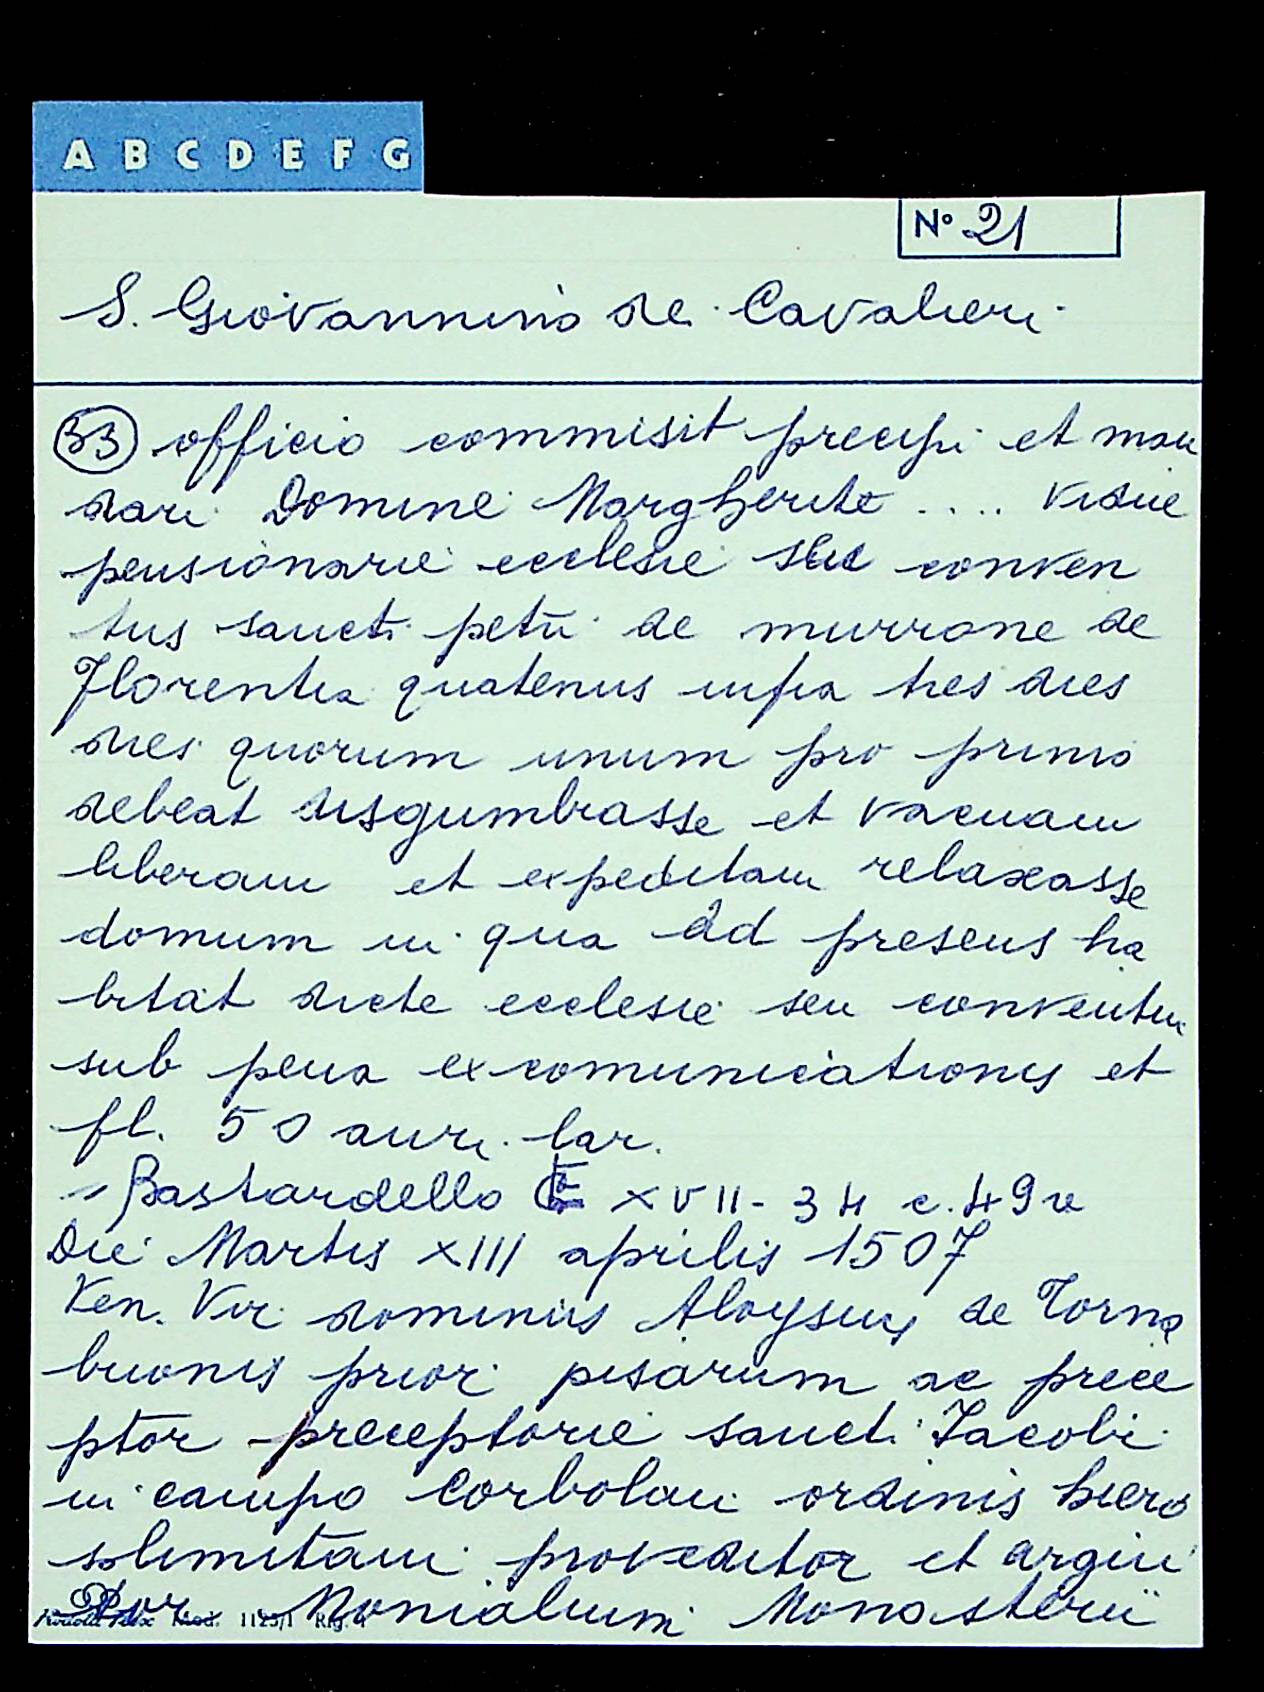 A B C D E F G
N° 21
S. Giovannino de Cavalieri
33 officio commisit precipi et man
dari Domine Margherite .... vidue
pensionarie ecclesie seu conven
tus sancti petri de murrone de
Florentia quatenus infra tres dies
dies quorum unum pro primo
debeat disgumbrasse et vacuam
liberam et expeditam relaxasse
domum in qua ad presens ha
bitat dicte ecclesie seu conventui
sub pena excomunicationis et
fl. 50 auri lar.
Bastardello E XVII - 34 c. 49v
Die Martis XIII aprilis 1507
Ven. Vir dominus Aloysius de Torna
buonis prior pisarum ac prece
ptor preceptorie sancti Jacobi
in campo Corbolini ordinis hiero
solimitani proveditor et
Monialium Monasterii
Mod. 1125/1 Rig. 4